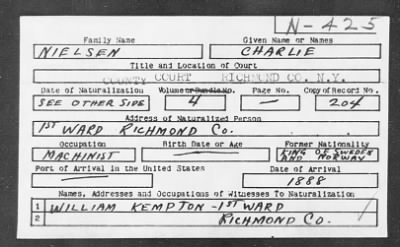 N-425
Family Name Given Name or Names
NIELSEN CHARLIE
Title and Location of Court
COUNTY COURT RICHMOND CO. N.Y.
Date of Naturalization Volume or Bundle No. Page No. Copy of Record No.
SEE OTHER SIDE 4 — 204
Address of Naturalized Person
1ST WARD RICHMOND CO.
Occupation Birth Date or Age Former Nationality
MACHINIST — KING OF SWEDEN AND NORWAY
Port of Arrival in the United States Date of Arrival
— 1888
Names, Addresses and Occupations of Witnesses To Naturalization
1 WILLIAM KEMPTON - 1ST WARD
2 RICHMOND CO.